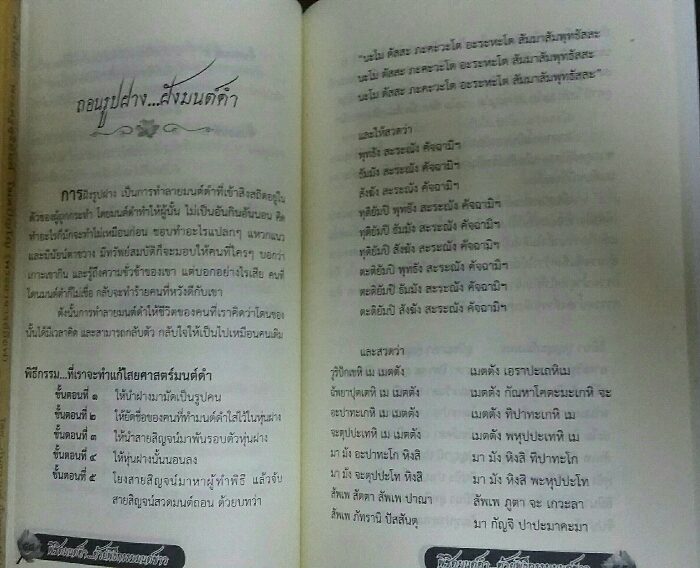 ถอนรูปฝาง...ฝังมนต์ดำ
การฝังรูปฝาง เป็นการทำลายมนต์ดำที่เข้าสิงสถิตอยู่ใน
ตัวของผู้ถูกกระทำ โดยมนต์ดำทำให้ผู้นั้น ไม่เป็นอันกินอันนอน คิด
ทำอะไรก็มักจะทำไม่เหมือนก่อน ชอบทำอะไรแปลกๆ แหวกแนว
และมีนัยน์ตาขวาง มีทรัพย์สมบัติก็จะมอบให้คนที่ใครๆ บอกว่า
เกาะเขากิน และรู้ถึงความชั่วช้าของเขา แต่บอกอย่างไรเสีย คนที่
โดนมนต์ดำก็ไม่เชื่อ กลับจะทำร้ายคนที่หวังดีกับเขา
ดังนั้นการทำลายมนต์ดำให้ชีวิตของคนที่เราคิดว่าโดนของ
นั้นได้มีเวลาคิด และสามารถกลับตัว กลับใจให้เป็นไปเหมือนคนเดิม
พิธีกรรม...ที่เราจะทำแก้ไสยศาสตร์มนต์ดำ
ขั้นตอนที่ ๑ ให้นำฝางมามัดเป็นรูปคน
ขั้นตอนที่ ๒ ให้ยัดชื่อของคนที่ทำมนต์ดำใส่ไว้ในหุ่นฝาง
ขั้นตอนที่ ๓ ให้นำสายสิญจน์มาพันรอบตัวหุ่นฝาง
ขั้นตอนที่ ๔ ให้หุ่นฝางนั้นนอนลง
ขั้นตอนที่ ๕ โยงสายสิญจน์มาหาผู้ทำพิธี แล้วจับ
สายสิญจน์สวดมนต์ถอน ด้วยบทว่า
"นะโม ตัสสะ ภะคะวะโต อะระหะโต สัมมาสัมพุทธัสสะ
นะโม ตัสสะ ภะคะวะโต อะระหะโต สัมมาสัมพุทธัสสะ
นะโม ตัสสะ ภะคะวะโต อะระหะโต สัมมาสัมพุทธัสสะ"
และให้สวดว่า
พุทธัง สะระณัง คัจฉามิฯ
ธัมมัง สะระณัง คัจฉามิฯ
สังฆัง สะระณัง คัจฉามิฯ
ทุติยัมปิ พุทธัง สะระณัง คัจฉามิฯ
ทุติยัมปิ ธัมมัง สะระณัง คัจฉามิฯ
ทุติยัมปิ สังฆัง สะระณัง คัจฉามิฯ
ตะติยัมปิ พุทธัง สะระณัง คัจฉามิฯ
ตะติยัมปิ ธัมมัง สะระณัง คัจฉามิฯ
ตะติยัมปิ สังฆัง สะระณัง คัจฉามิฯ
และสวดว่า
วิรูปักเขหิ เม เมตตัง เมตตัง เอราปะเถหิเม
ฉัพยาปุตเตหิ เม เมตตัง เมตตัง กัณหาโคตะมะเกหิ จะ
อะปาทะเกหิ เม เมตตัง เมตตัง ทิปาทะเกหิ เม
จะตุปปะเทหิ เม เมตตัง เมตตัง พหุปปะเทหิ เม
มา มัง อะปาทะโก หิงสิ มา มัง หิงสิ ทิปาทะโก
มา มัง จะตุปปะโท หิงสิ มา มัง หิงสิ พะหุปปะโท
สัพเพ สัตตา สัพเพ ปาณา สัพเพ ภูตา จะ เกวะลา
สัพเพ ภัทรานิ ปัสสันตุ มา กัญจิ ปาปะมาคะมา